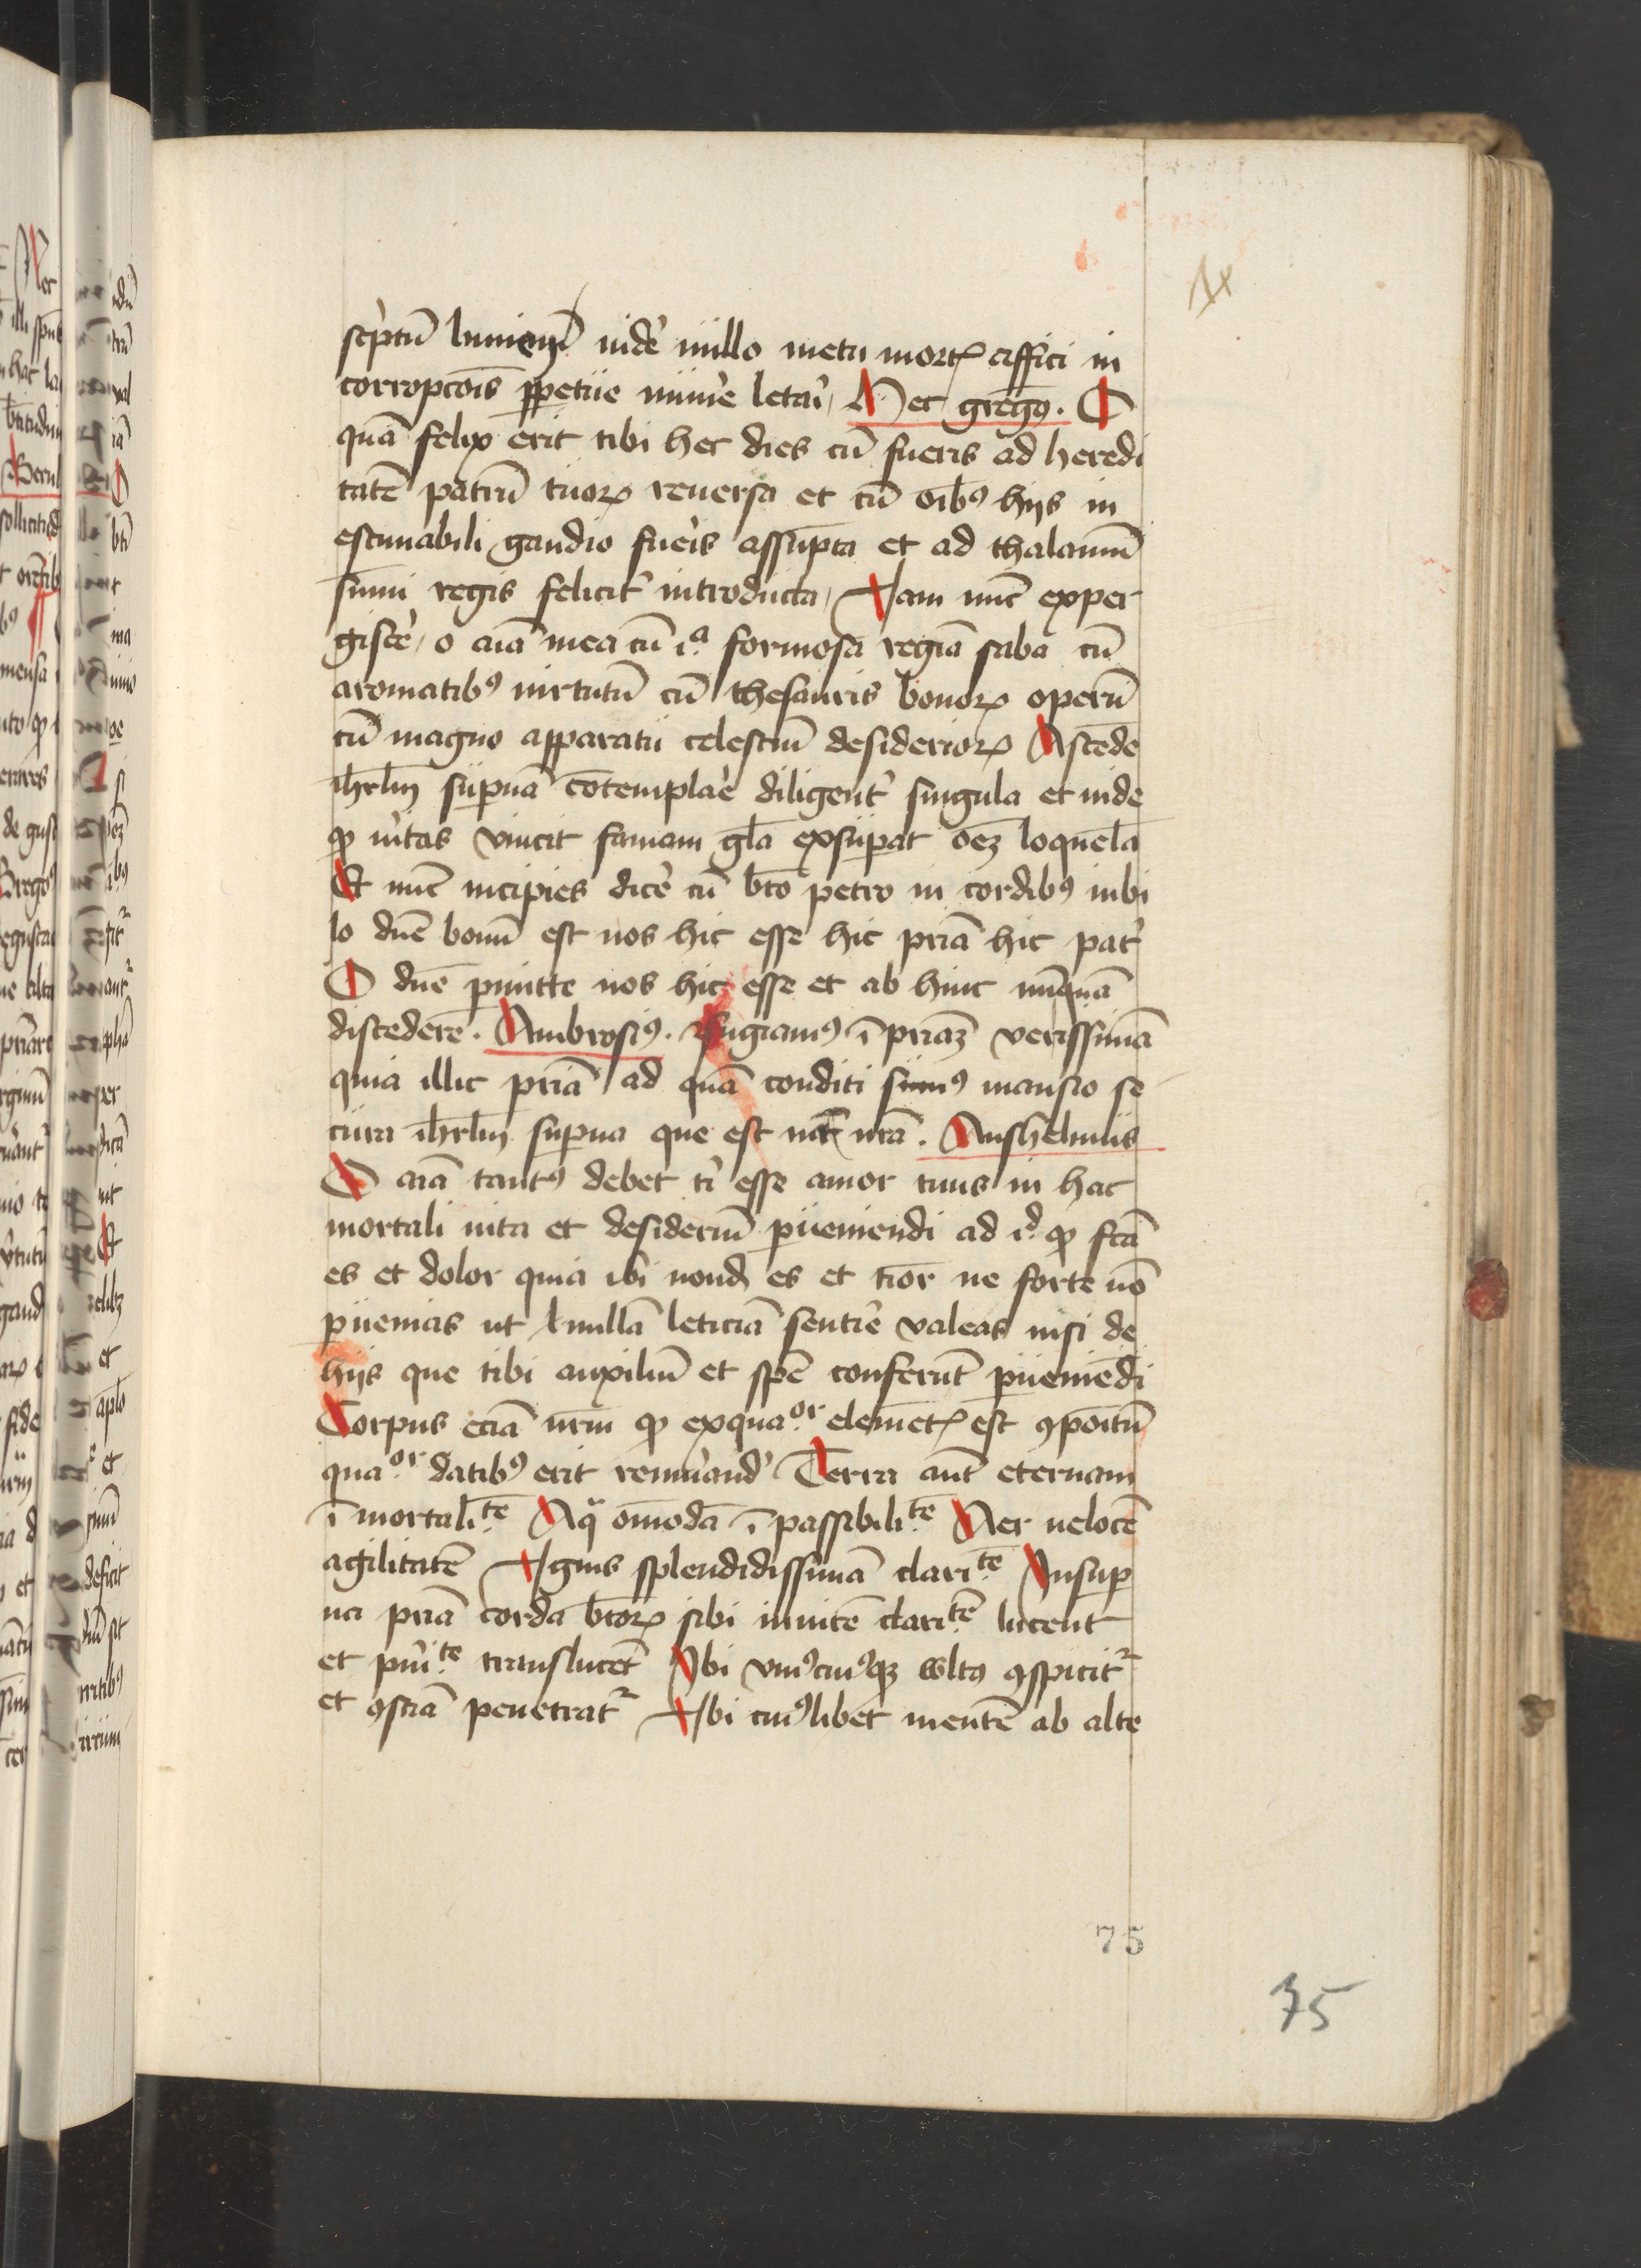 sc̉ptū lumen uidẻ nullo metu mortꝭ affici in
corropcoīs ꝑpetue munẻe letaỉ Hec gregoꝰ. O
quā felix erit tibi hec dies cū fueris ad heredi
tatē patrū tuoꝝ reuersa et cū oībꝰ hijs in
estimabili gaudio fueỉs assūpta et ad thalamū
sūmi regis felicit̉ introducta Iam nūc exper
giscẻ o aīa mea cū i.ᵃ formosa regīa saba cū
aromatibꝰ uirtutū cū thesauris bonoꝝ operū
cū magno apparatu celestiū desiderioꝝ Ascēde
ih̄rlm̄ suꝑnā cōtemplaẻ diligent̉ singula et uide
ꝙ ủitas vincit famam gl̄a exsuꝑat oēꝫ loquelā
Et nūc incipies dicẻ cū bt̄o petro in cordibꝰ iubi
lo dn̄e bonū est nos hic esse hic pr̄ia hic pat̉
O dn̄e ꝑmitte nos hic esse et ab hinc nūquā
discedere. Ambrosiꝰ. Fugiamꝰ ī pr̄iaꝫ verissimā
quia illic pr̄ia ad quā conditi sumꝰ mansio se
cura ih̄rlm̄ suꝑna que est mat̉ nr̄a. Anshelmus
O aīa tantꝰ debet tỉ esse amor tuus in hac
mortali uita et desideriū ꝑueniendi ad i.ᵈ ꝙ fc̄a
es et dolor quia ibi nond̄ es et tīor ne forte nō
ꝑuenias ut nullā leticiā sentiẻ valeas nisi de
hijs que tibi auxiliū et spē conferūt ꝑueniēdi
Corpus eciā nr̄m ꝙ ex qua.ᵒʳ elemētꝭ est ꝯpoītū
qua.ᵒʳ dotibꝰ erit remuủand̉ Terra aūt eternam
ī mortali.ᵗᵉ̄ Aqᵃ omōdā ī passibili.ᵗᵉ̄ Aer uelocē
agilitatē Ignis splendidissimā clari.ᵗᵉ̄ In suꝑ
na pr̄ia corda bt̄oꝝ sibi inuicē clari.ᵗᵉ̄ lucent
et puỉ.ᵗᵉ translucēt Ibi vniꝰcuiꝰqꝫ wltꝰ ꝯspicitᷣ
et ꝯsciā penetratᷣ Ibi cuiꝰlibet mentē ab alte
75
75